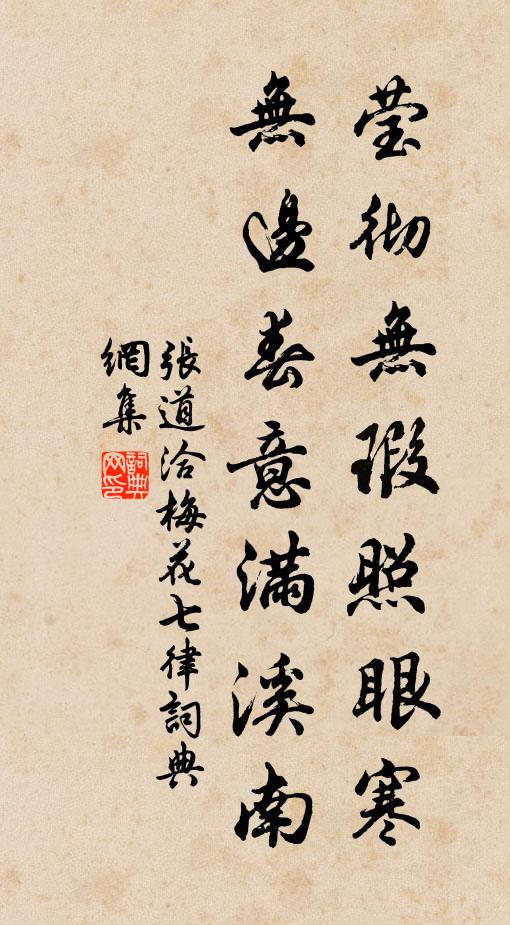 莹彻無瑕照眼寒
無邊春意滿溪南
張道洽梅花七律詞典
網集
詞典
网印